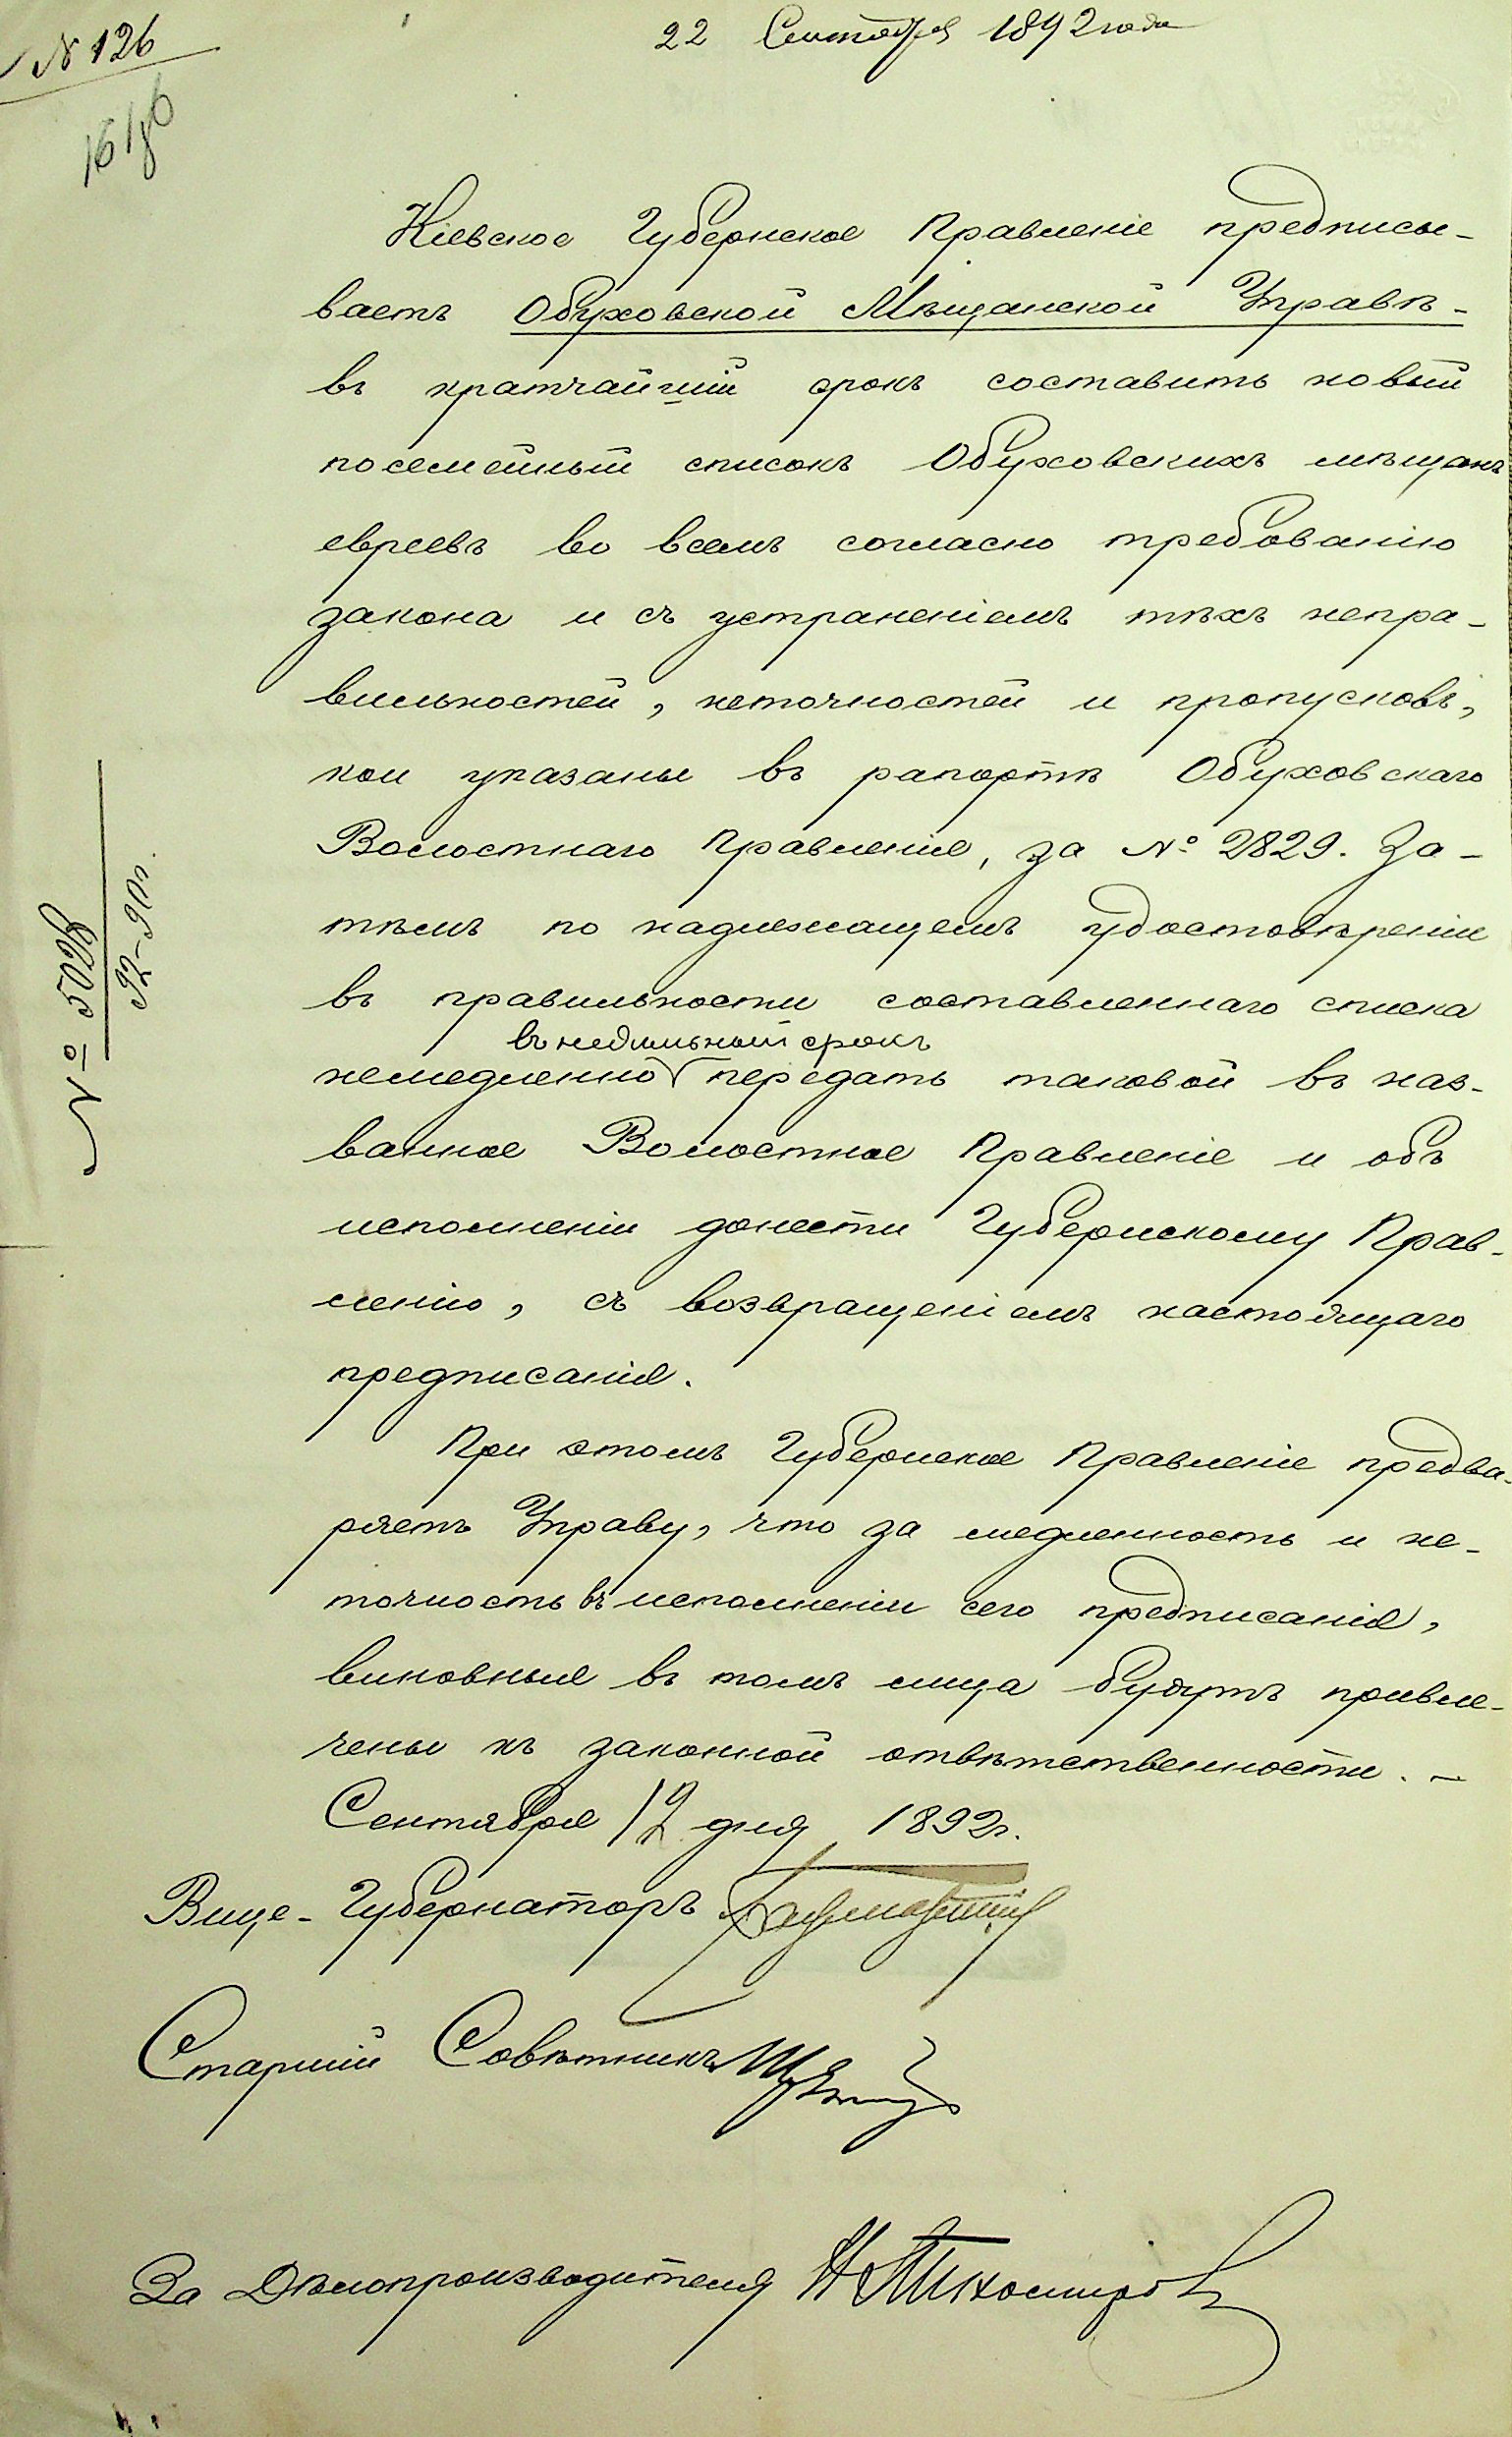 № 126
22 Сентября 1892 года
Кіевское Губернское Правленіе предписы-
ваетъ Обуховской Мѣщанской Управѣ-
въ кратчайшій срокъ составить новый
посемейный списокъ Обуховскихъ мѣщанъ
евреевъ во всемъ согласно требованію
закона и съ устраненіемъ тѣхъ непра-
вильностей, неточностей и пропусковъ,
кои указаны въ рапортѣ Обуховскаго
Волостнаго Правленія, за № 2829. За-
тѣмъ по надлежащемъ удостовѣреніи
въ правильности составленнаго списка
въ недѣльный срокъ
немедленно передать таковой въ наз-
ванное Волостное Правленіе и объ
исполненіи донести Губернскому Прав-
ленію, съ возвращеніемъ настоящаго
предписанія.
При этомъ Губернское Правленіе предва-
ряетъ Управу, что за медленность и не-
точность въ исполненіи сего предписанія,
виновные въ томъ лица будутъ привле-
чены къ законной отвѣтственности. —
Сентября 12 дня 1892г.
Вице-Губернаторъ
Старшій Совѣтникъ
За Дѣлопроизводителя Н Тихомировъ
№ 5028
92-90г.